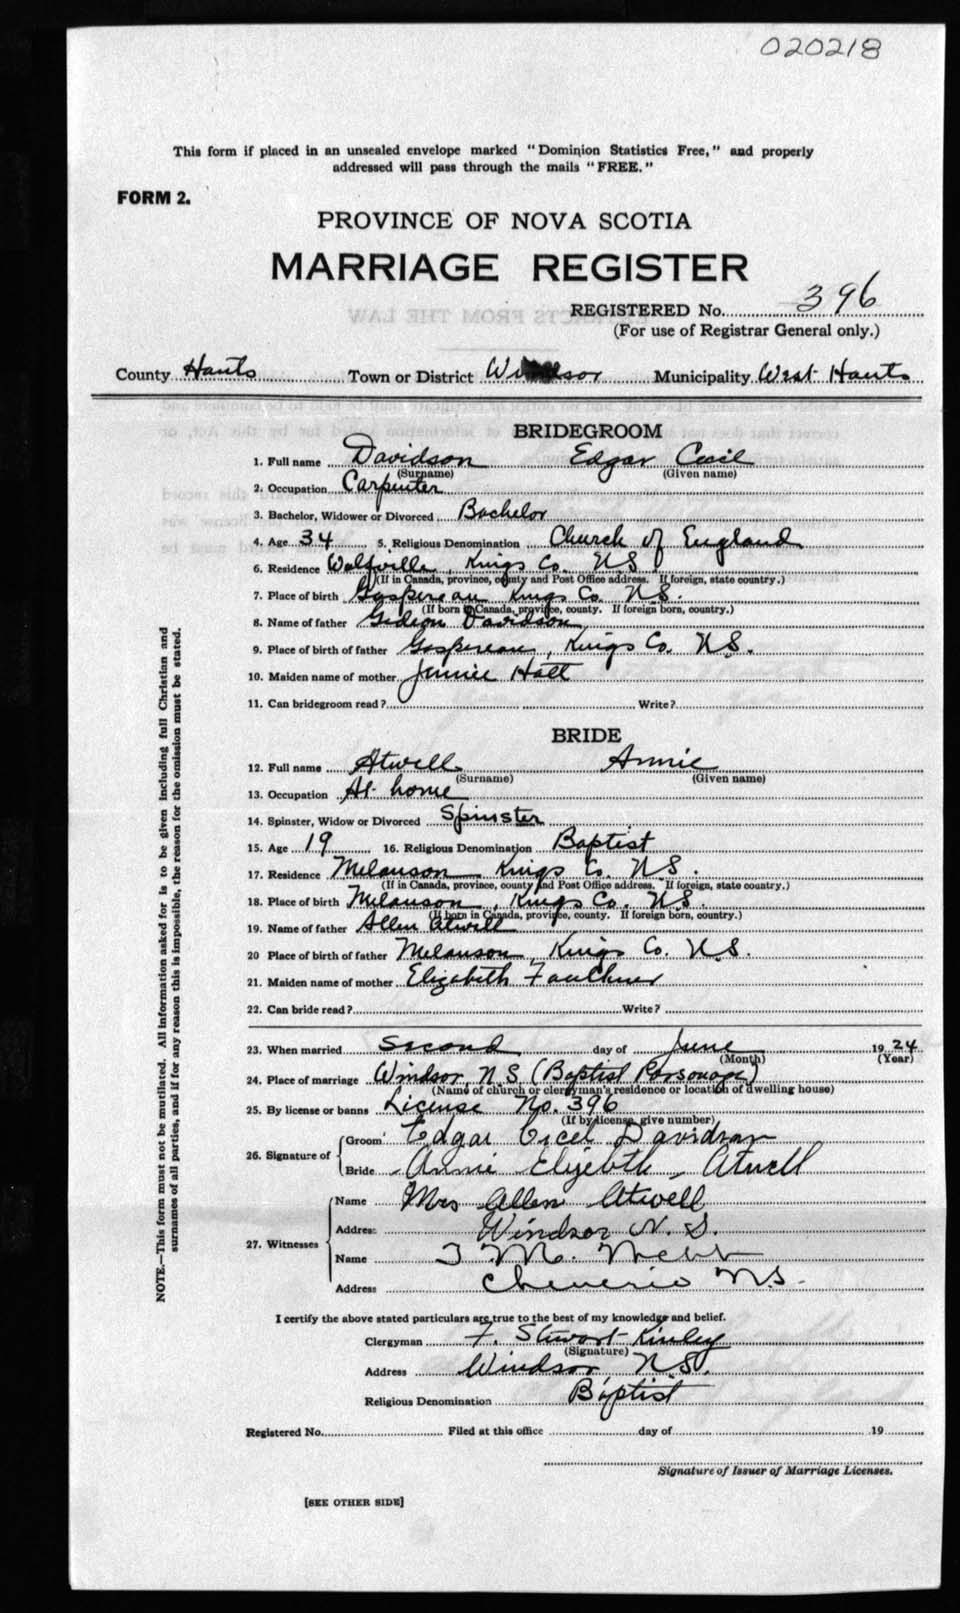 020218
This form if placed in an unsealed envelope marked "Dominion Statistics Free," and properly
addressed will pass through the mails "FREE."
FORM 2.
PROVINCE OF NOVA SCOTIA
MARRIAGE REGISTER
REGISTERED No. 396
(For use of Registrar General only.)
County Hants Town or District Windsor Municipality West Hants
BRIDEGROOM
1. Full name Davidson Edgar Cecil
(Surname) (Given name)
2. Occupation Carpenter
3. Bachelor, Widower or Divorced Bachelor
4. Age 34 5. Religious Denomination Church of England
6. Residence Wolfville, Kings Co. N.S.
(If in Canada, province, county and Post Office address. If foreign, state country.)
7. Place of birth Gaspereau Kings Co. N.S.
(If born in Canada, province, county. If foreign born, country.)
8. Name of father Gideon Davidson
9. Place of birth of father Gaspereau, Kings Co. N.S.
10. Maiden name of mother Jennie Hatt
11. Can bridegroom read? Write?
BRIDE
12. Full name Atwell Annie
(Surname) (Given name)
13. Occupation At home
14. Spinster, Widow or Divorced Spinster
15. Age 19 16. Religious Denomination Baptist
17. Residence Melanson, Kings Co. N.S.
(If in Canada, province, county and Post Office address. If foreign, state country.)
18. Place of birth Melanson, Kings Co. N.S.
(If born in Canada, province, county. If foreign born, country.)
19. Name of father Allen Atwell
20 Place of birth of father Melanson, Kings Co. N.S.
21. Maiden name of mother Elizabeth Faulkner
22. Can bride read? Write?
23. When married Second day of June 1924
(Month) (Year)
24. Place of marriage Windsor, N S (Baptist Parsonage)
(Name of church or clergyman's residence or location of dwelling house)
25. By license or banns License No. 396
(If by license, give number)
26. Signature of
Groom Edgar Cicel Davidson
Bride Annie Elizebth Atwell
27. Witnesses
Name Mrs Allen Atwell
Address Windsor N. S.
Name T M. Webb
Address Cheverie N.S.
I certify the above stated particulars are true to the best of my knowledge and belief.
Clergyman F. Stewart Kinley
(Signature)
Address Windsor N.S.
Religious Denomination Baptist
Registered No. Filed at this office day of 19
Signature of Issuer of Marriage Licenses.
[SEE OTHER SIDE]
NOTE.—This form must not be mutilated. All information asked for is to be given including full Christian and
surnames of all parties, and if for any reason this is impossible, the reason for the omission must be stated.